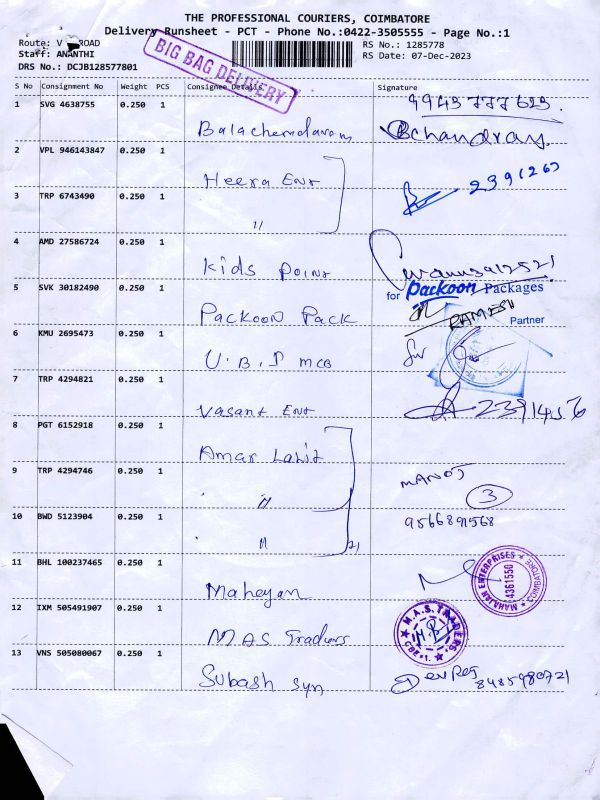 THE PROFESSIONAL COURIERS, COIMBATORE
Delivery Runsheet - PCT - Phone No.:0422-3505555 - Page No.:1
Route: V ROAD
RS No.: 1285778
Staff: ANANTHI
RS Date: 07-Dec-2023
DRS No.: DCJB128577801
BIG BAG DELIVERY
S No Consignment No Weight PCS Consignee Details Signature
1 SVG 4638755 0.250 1
Balachandaram
2 VPL 946143847 0.250 1
Heera Ent 2391267
3 TRP 6743490 0.250 1
11
4 AMD 27586724 0.250 1
Kids Point
5 SVK 30182490 0.250 1
for Packoon Packages
Packoon Pack RAMESH
Partner
6 KMU 2695473 0.250 1
U.B.I MCB
7 TRP 4294821 0.250 1
Vasant Ent 2391456
8 PGT 6152918 0.250 1
Amar Lalit
9 TRP 4294746 0.250 1
MANOJ
11 3
10 BWD 5123904 0.250 1
9566891568
11
11 BHL 100237465 0.250 1
MAHAJAN ENTERPRISES COIMBATORE 4361550
Mahajan
12 IXM 505491907 0.250 1
M.A.S. TRADERS CBE-1.
MAS Traders
13 VNS 505080067 0.250 1
Subash Syn 8485980721